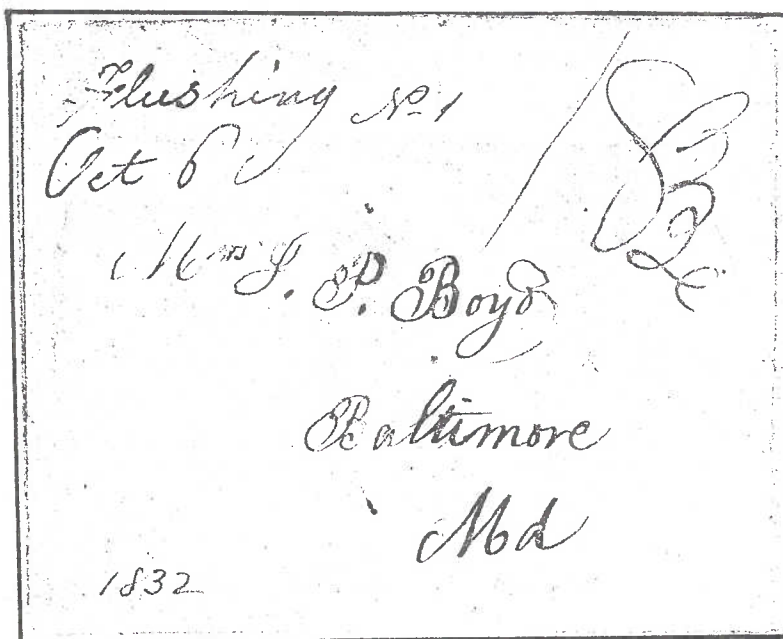 Flushing No 1
Oct 6
Mrs J. P. Boyd
Baltimore
Md
1832